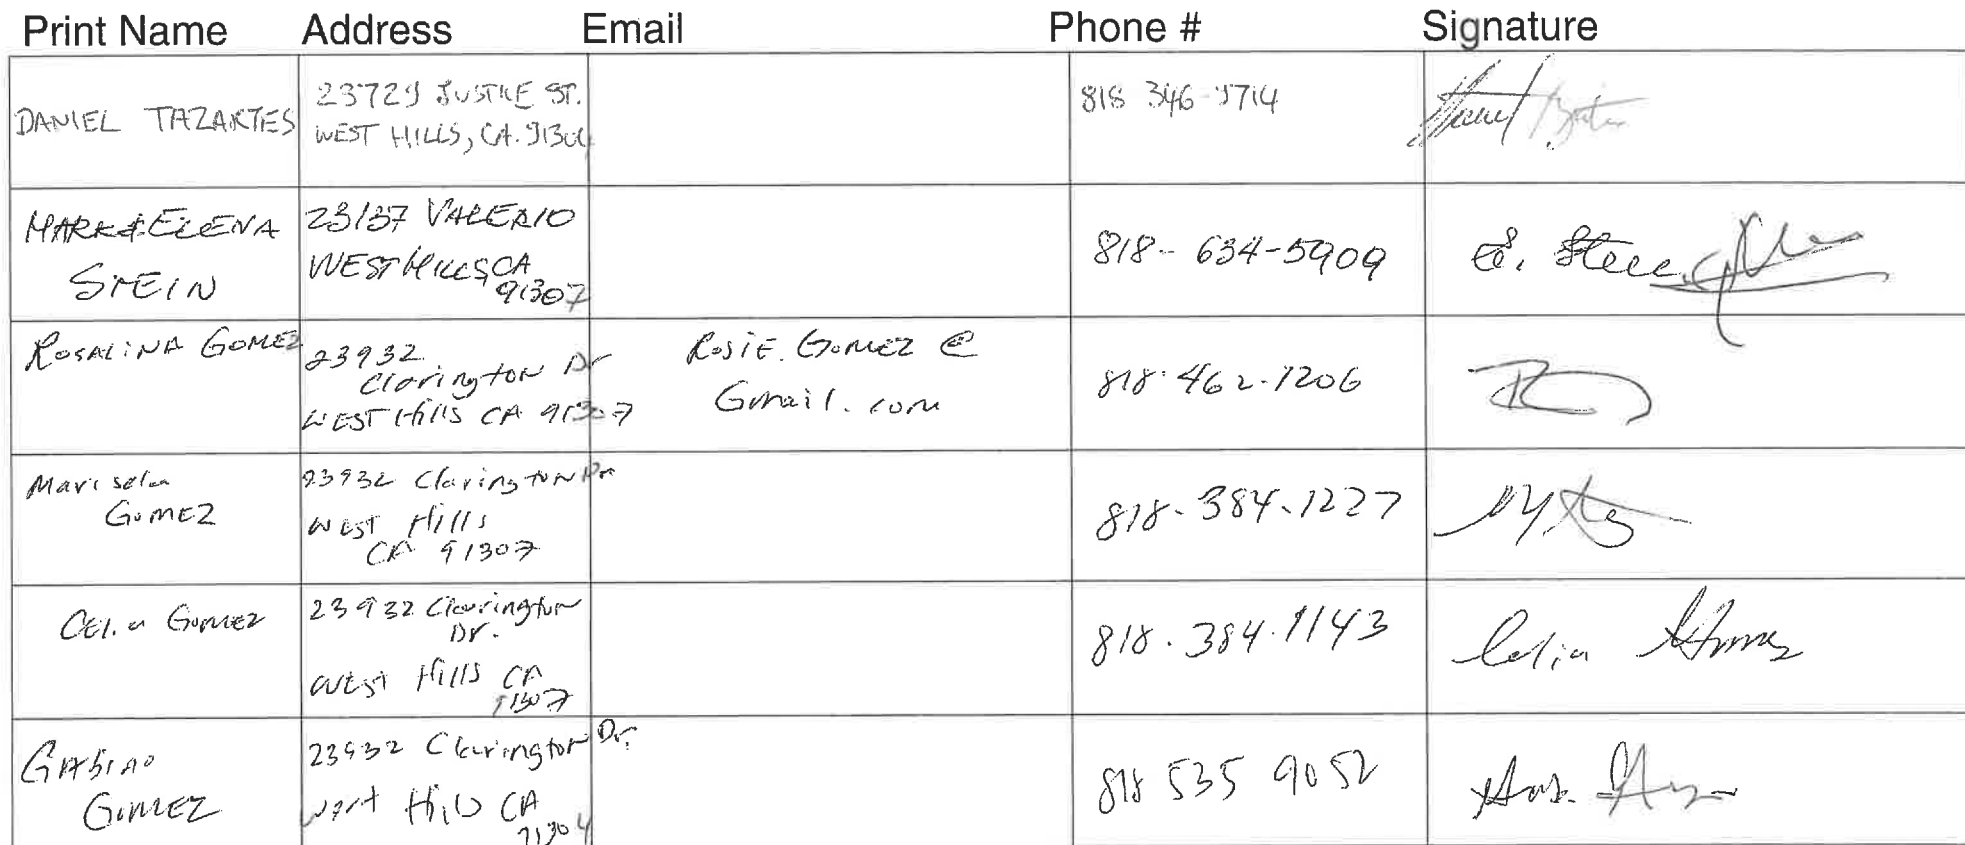 Print Name Address Email Phone # Signature
DANIEL TAZARTES
23729 JUSTICE ST.
WEST HILLS, CA. 91304
818 346-9714
MARK & ELENA
STEIN
23137 VALERIO
WEST HILLS CA
91307
818-634-5909
E. Stein
ROSALINA GOMEZ
23932
Clarington Dr
WEST Hills CA 91307
ROSIE.GOMEZ @
Gmail.com
818.462.1206
Marisela
GOMEZ
23932 Clarington Dr
WEST Hills
CA 91307
818-384-1227
CELia GOMEZ
23932 Clarington
Dr.
WEST Hills CA
91307
818.384.1143
Celia Gomez
GABINO
GOMEZ
23932 Clarington Dr.
West Hills CA
91304
818 535 9052